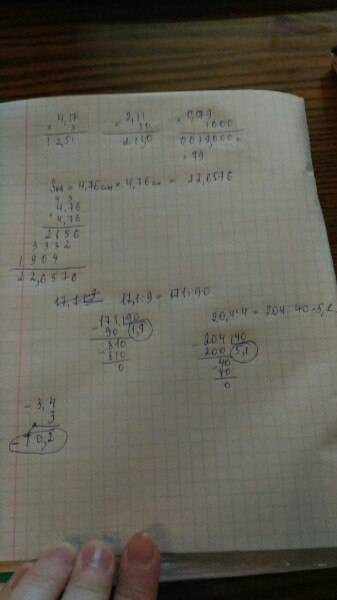 4,17 2,11 0,079
× 3 × 10 × 1000
12,51 21,10 0079,000
= 79
Sкв = 4,76 см × 4,76 см = 22,6576
4,76
4,76
2856
3332
1904
22,6576
17,1 : 9 = 171 : 90
171 90
90 1,9
810
- 810
0
20,4 : 4 = 204 : 40 = 5,1
- 204 40
200 5,1
40
- 40
0
- 3,4
3
- 10,2